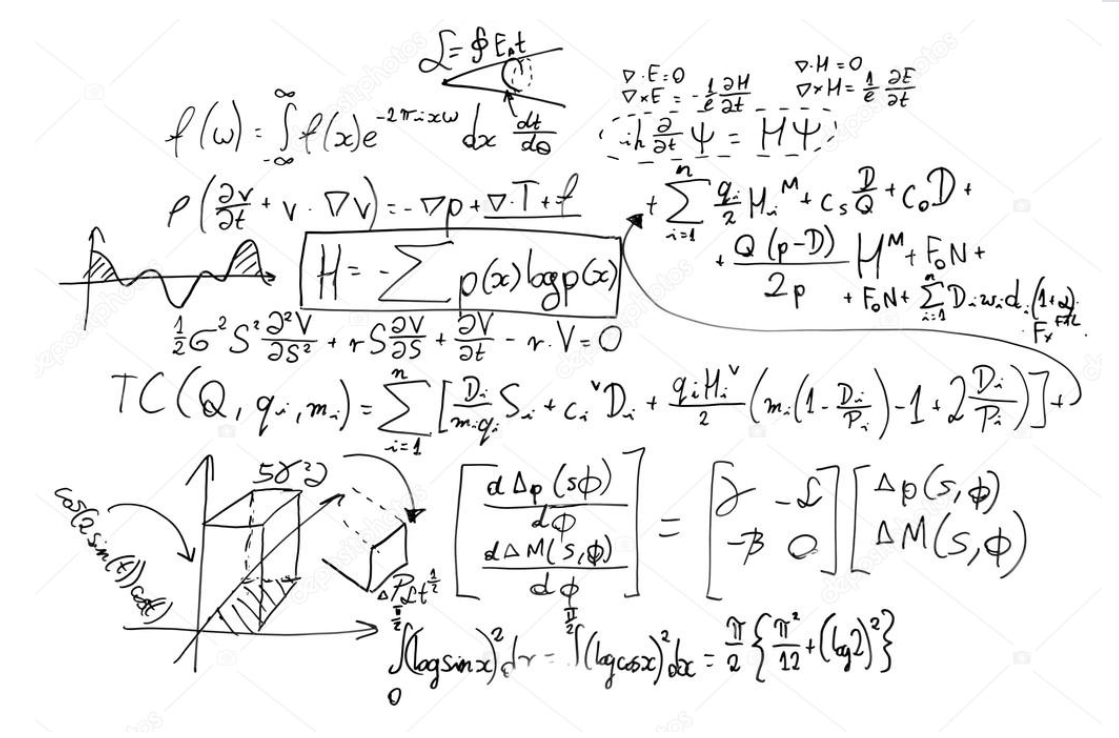 ℒ = ∮E₀t
∇·E=0
∇×E = -1/e ∂H/∂t
∇·H=0
∇×H = 1/e ∂E/∂t
f(ω) = ∫_{-∞}^{∞} f(x)e^{-2πixω} dx
dt/dθ
iħ ∂/∂t Ψ = HΨ
ρ(∂v/∂t + v·∇v) = -∇p + ∇·T + f
+ ∑_{i=1}^{n} q_i/2 H_i^M + c_s D/Q + c_0 D +
+ Q(p-D)/2p H^M + F_0N +
+ F_0N + ∑_{i=1}^{n} D_i w_i d_i (1+α)
H = -∑ p(x) log p(x)
1/2 σ²S² ∂²V/∂S² + rS ∂V/∂S + ∂V/∂t - r·V = 0
TC(Q, q_i, m_i) = ∑_{i=1}^{n} [D_i/(m_i q_i) S_i + c_i^v D_i + q_i H_i^v/2 (m_i(1 - D_i/P_i) - 1 + 2 D_i/P_i)] +
[dΔp(sϕ)/dϕ
dΔM(s,ϕ)/dϕ] = [γ -ℒ
-β 0] [Δp(s,ϕ)
ΔM(s,ϕ)]
∫_0^{π/2} (log sin x)² dx = ∫^{π/2} (log cos x)² dx = π/2 {π²/12 + (log 2)²}